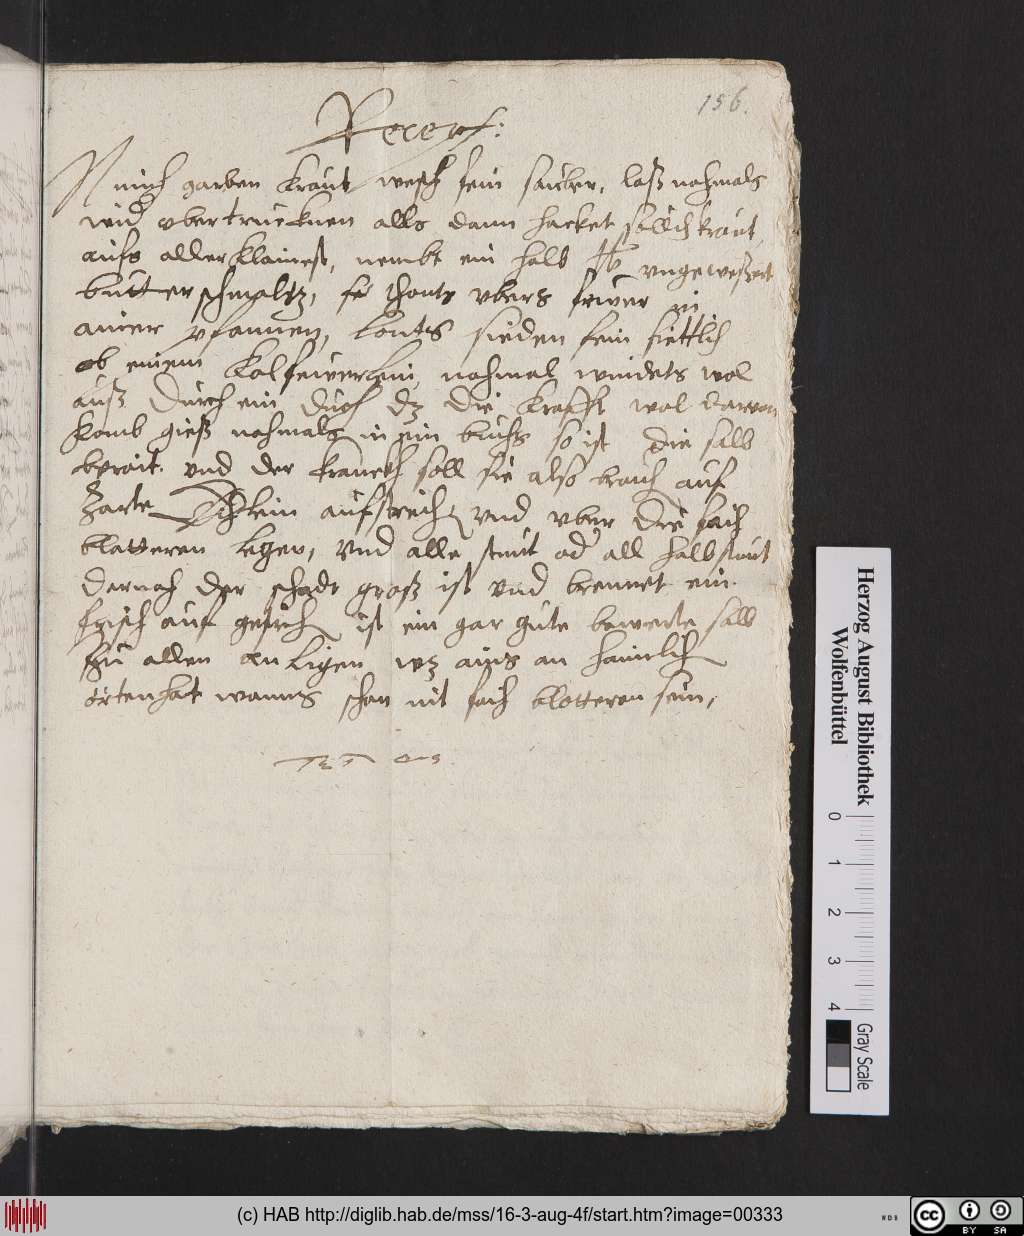 156.
Recept:
Nimb garben Kraut wesch fein sauber, laß nahmals
wid vbertrucknen alls dann hacket sollich kraut,
aufs aller klainest, nembt ein halb lb vngewessert
butterschmaltz, thonts vbers feiuer in
ainer pfannen, lonts sieden fein sittlich
ob einem Kolfeiuerlein, nahmal windets wol
auß durch ein duoch dz die Krafft wol darvon
komb gieß nahmals in ein buchs so ist die salb
berait. vnd der kranckh soll sie also brauch auf
zarte lein aufstreich, vnd vber die
blatteren legen, vnd alle stunt od all halb stunt
darnach der schadt groß ist vnd brennet ein
frisch auf gestrich ist ein gar gute bewerte salb
zu allen an ligen wz ains an haimlich
örten hat wanns schon nit blatteren sein,
Herzog August Bibliothek
Wolfenbüttel
0 1 2 3 4
Gray Scale
(c) HAB http://diglib.hab.de/mss/16-3-aug-4f/start.htm?image=00333
WDB
cc BY SA